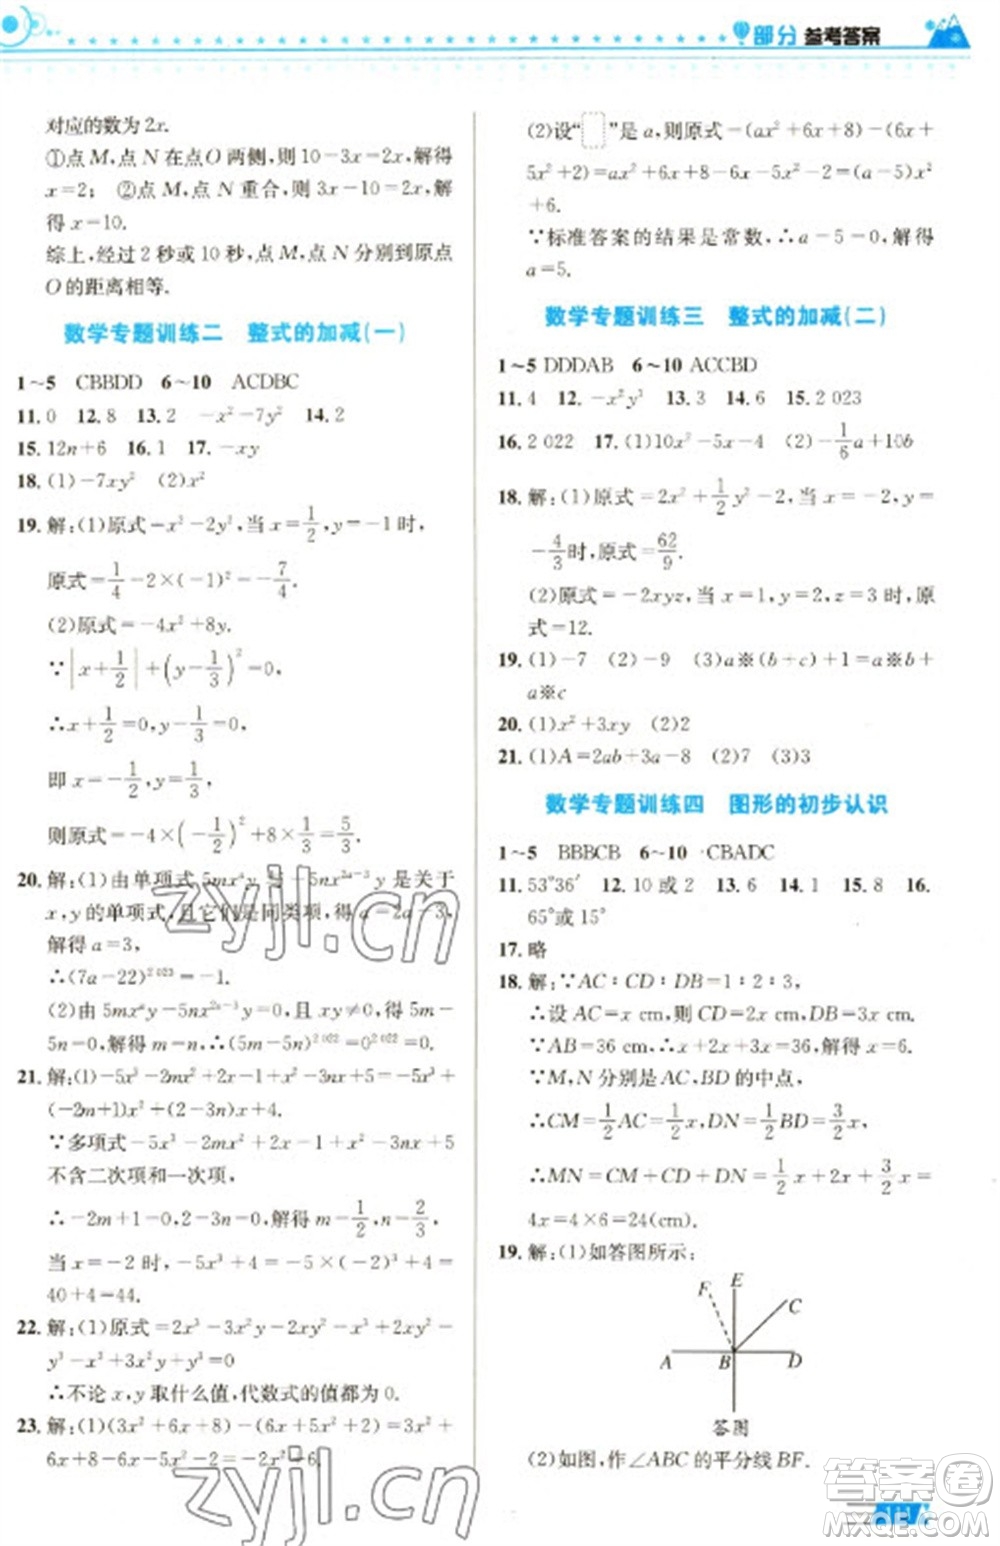 部分 参考答案
对应的数为2x.
①点M,点N在点O两侧,则10-3x=2x,解得
x=2; ②点M,点N重合,则3x-10=2x,解
得x=10.
综上,经过2秒或10秒,点M,点N分别到原点
O的距离相等.
数学专题训练二 整式的加减(一)
1~5 CBBDD 6~10 ACDBC
11.0 12.8 13.2 -x²-7y² 14.2
15.12n+6 16.1 17.-xy
18.(1)-7xy² (2)x²
19.解:(1)原式=x²-2y²,当x=1/2,y=-1时,
原式=1/4-2×(-1)²=-7/4.
(2)原式=-4x²+8y.
∵|x+1/2|+(y-1/3)²=0,
∴x+1/2=0,y-1/3=0,
即x=-1/2,y=1/3,
则原式=-4×(-1/2)²+8×1/3=5/3.
20.解:(1)由单项式5mxᵃy与-5nx²ᵃ⁻³y是关于
x,y的单项式,且它们是同类项,得a=2a-3,
解得a=3,
∴(7a-22)²⁰²³=-1.
(2)由5mxᵃy-5nx²ᵃ⁻³y=0,且xy≠0,得5m-
5n=0,解得m=n,∴(5m-5n)²⁰²²=0²⁰²²=0.
21.解:(1)-5x³-2mx²+2x-1+x²-3nx+5=-5x³+
(-2m+1)x²+(2-3n)x+4.
∵多项式-5x³-2mx²+2x-1+x²-3nx+5
不含二次项和一次项,
∴-2m+1=0,2-3n=0,解得m=1/2,n=2/3.
当x=-2时,-5x³+4=-5×(-2)³+4=
40+4=44.
22.解:(1)原式=2x³-3x²y-2xy²-x³+2xy²-
y³-x³+3x²y+y³=0
∴不论x,y取什么值,代数式的值都为0.
23.解:(1)(3x²+6x+8)-(6x+5x²+2)=3x²+
6x+8-6x-5x²-2=-2x²+6.
(2)设“□”是a,则原式=(ax²+6x+8)-(6x+
5x²+2)=ax²+6x+8-6x-5x²-2=(a-5)x²
+6.
∵标准答案的结果是常数,∴a-5=0,解得
a=5.
数学专题训练三 整式的加减(二)
1~5 DDDAB 6~10 ACCBD
11.4 12.-x²y³ 13.3 14.2 15.2 023
16.2 022 17.(1)10x²-5x-4 (2)-1/6a+10b
18.解:(1)原式=2x²+1/2y²-2,当x=-2,y=
-4/3时,原式=62/9.
(2)原式=-2xyz,当x=1,y=2,z=3时,原
式=12.
19.(1)-7 (2)-9 (3)a※(b+c)+1=a※b+
a※c
20.(1)x²+3xy (2)2
21.(1)A=2ab+3a-8 (2)7 (3)3
数学专题训练四 图形的初步认识
1~5 BBBCB 6~10 CBADC
11.53°36′ 12.10或2 13.6 14.1 15.8 16.
65°或15°
17.略
18.解:∵AC∶CD∶DB=1∶2∶3,
∴设AC=x cm,则CD=2x cm,DB=3x cm.
∵AB=36 cm,∴x+2x+3x=36,解得x=6.
∵M,N分别是AC,BD的中点,
∴CM=1/2AC=1/2x,DN=1/2BD=3/2x,
∴MN=CM+CD+DN=1/2x+2x+3/2x=
4x=4×6=24(cm).
19.解:(1)如答图所示:
F E C
A B D
答图
(2)如图,作∠ABC的平分线BF.
zyjl.cn
zyjl.cn
答案圈
MXQE.COM